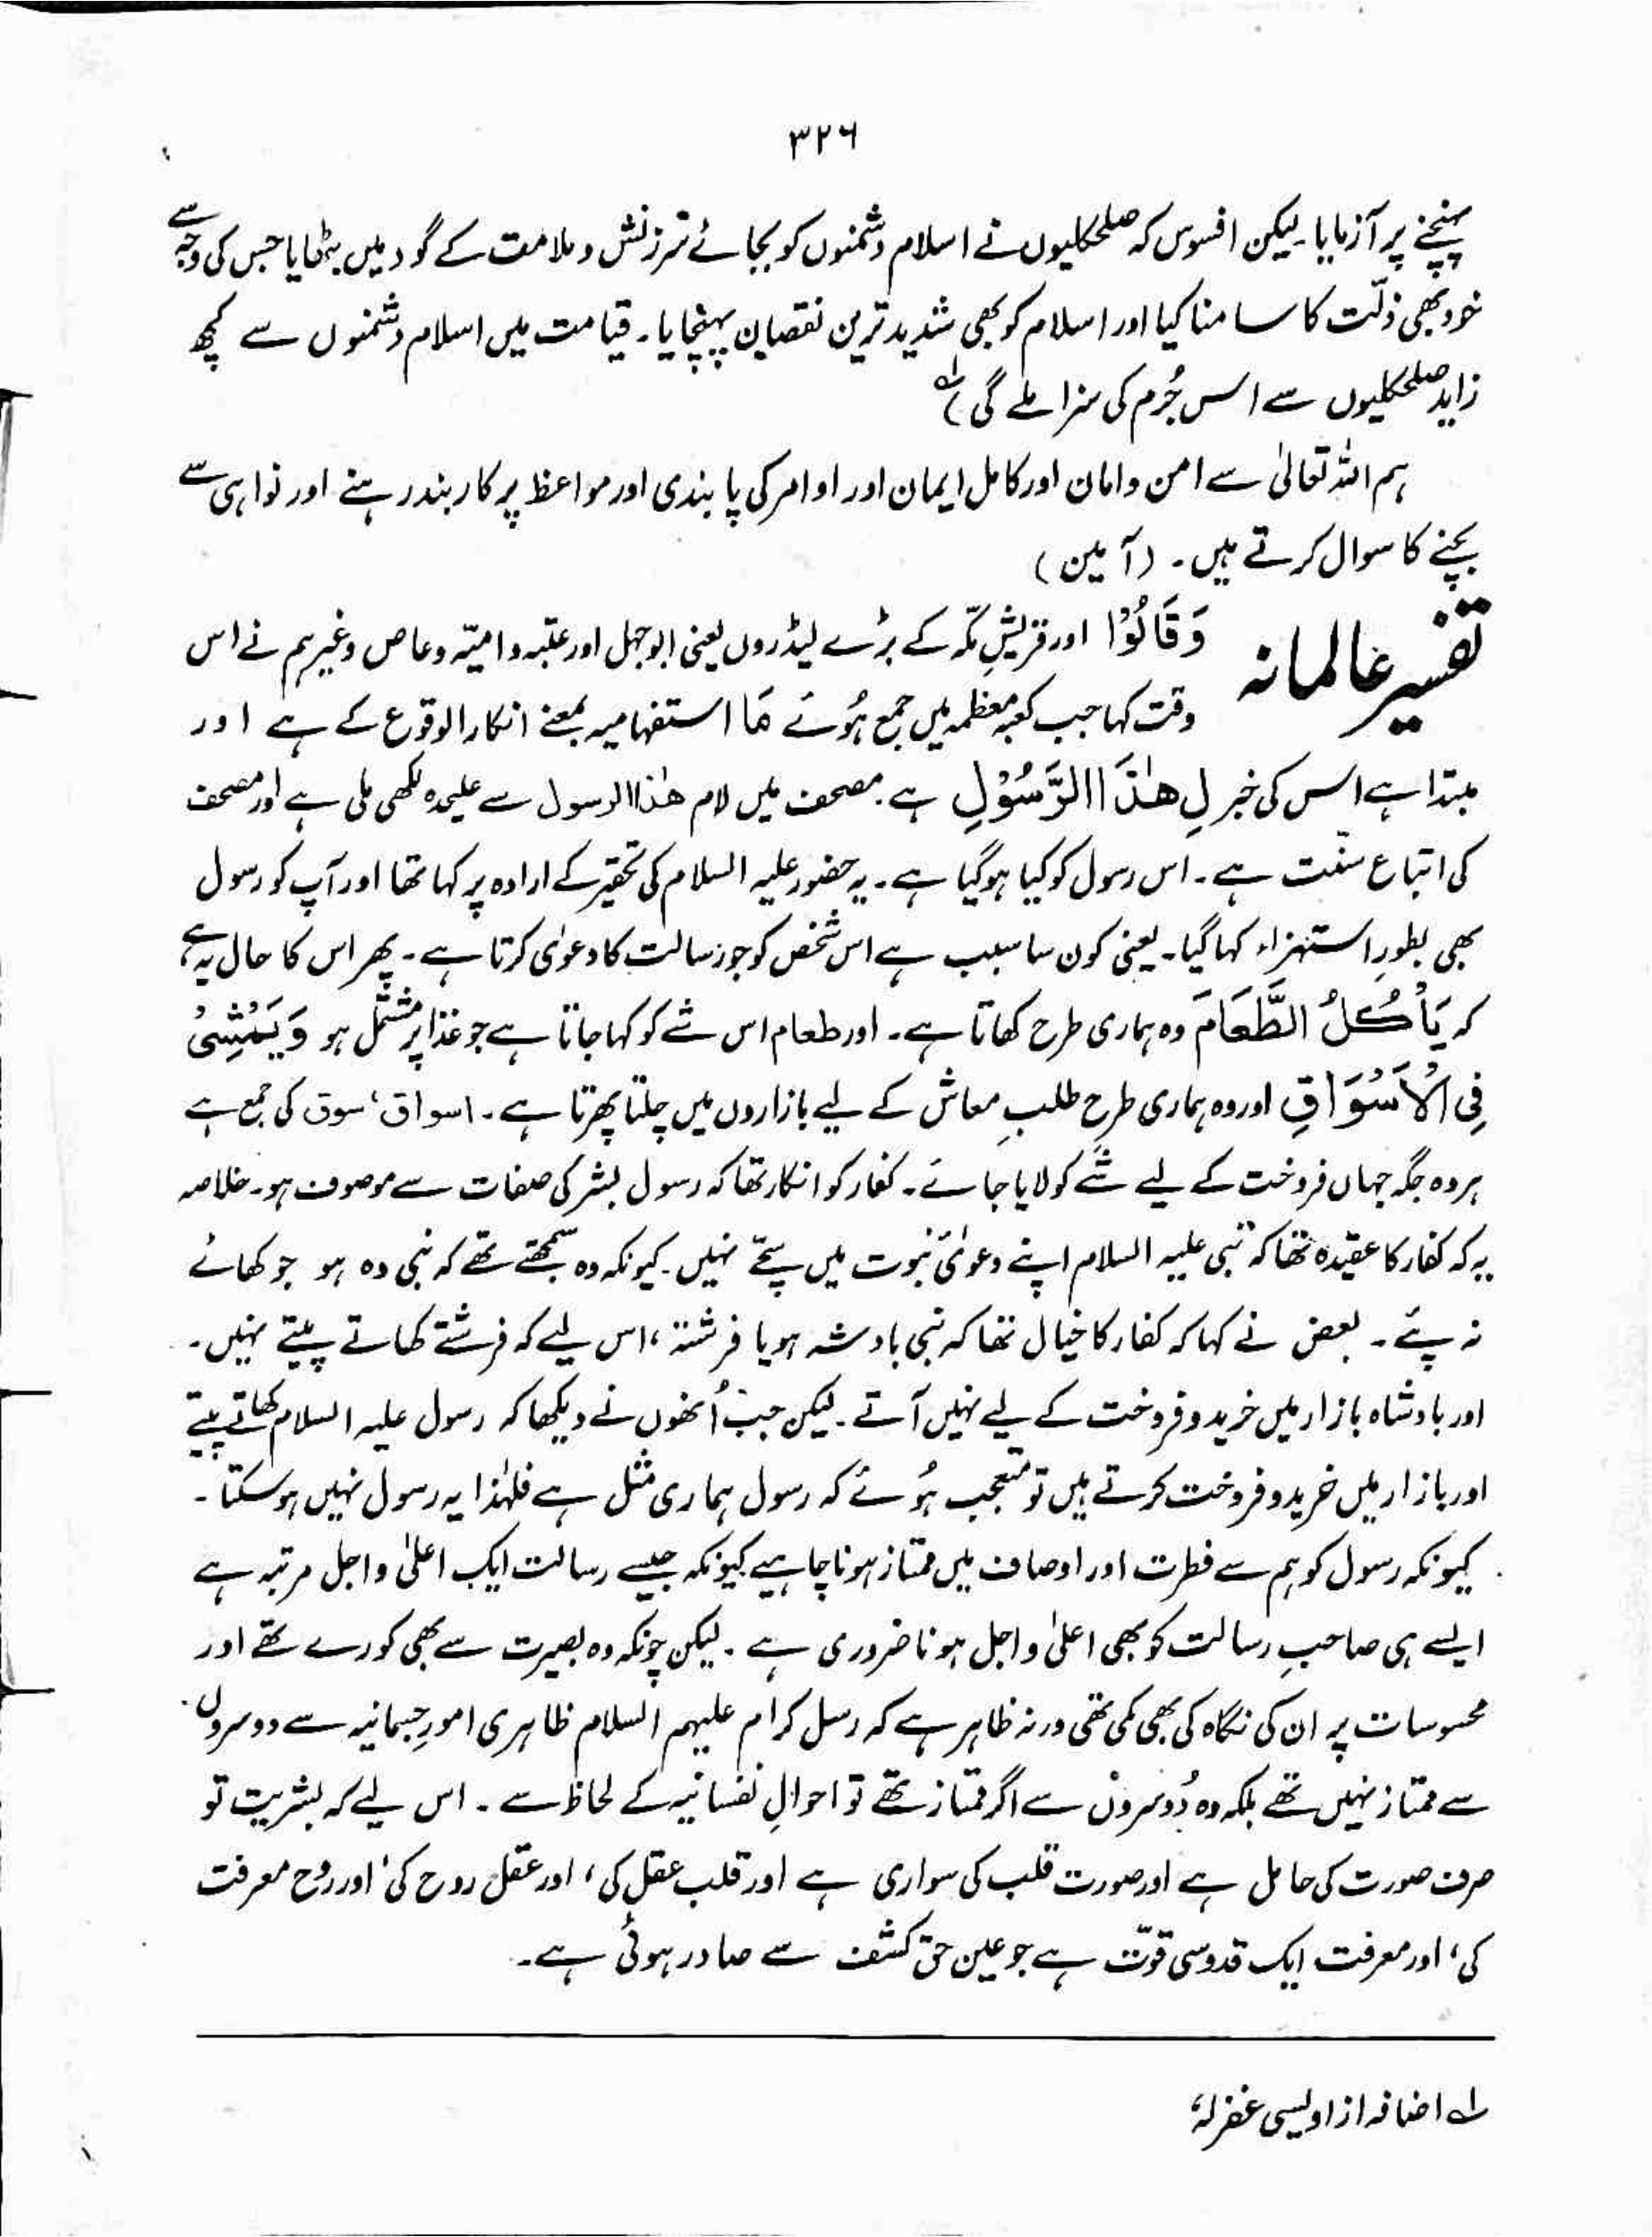 ۳۲۶
پہنچنے پر آزمایا۔ لیکن افسوس کہ صلحکلیوں نے اسلام دشمنوں کو بجائے سرزنش و ملامت کے گود میں بٹھایا جس کی وجہ سے
خود بھی ذلّت کا سامنا کیا اور اسلام کو بھی شدید ترین نقصان پہنچایا۔ قیامت میں اسلام دشمنوں سے کچھ
زاید صلحکلیوں سے اس جُرم کی سزا ملے گی) لے
ہم اللہ تعالیٰ سے امن و امان اور کامل ایمان اور اوامر کی پابندی اور مواعظ پر کاربند رہنے اور نواہی سے
بچنے کا سوال کرتے ہیں۔ (آمین)
تفسیر عالمانہ وَقَالُوْا اور قریشِ مکّہ کے بڑے لیڈروں یعنی ابوجہل اور عتبہ و امیّہ و عاص وغیرہم نے اس
وقت کہا جب کعبہ معظمہ میں جمع ہُوئے مَا استفہامیہ بمعنے انکار الوقوع کے ہے اور
مبتدا ہے اس کی خبر لِ ھٰذَا الرَّسُوْلِ ہے۔ مصحف میں لام ھٰذا الرسول سے علیحدہ لکھی ملی ہے اور مصحف
کی اتباع سنّت ہے۔ اس رسول کو کیا ہوگیا ہے۔ یہ حضور علیہ السلام کی تحقیر کے ارادہ پر کہا تھا اور آپ کو رسول
بھی بطورِ استہزاء کہا گیا۔ یعنی کون سا سبب ہے اس شخص کو جو رسالت کا دعوٰی کرتا ہے۔ پھر اس کا حال یہ ہے
کہ یَاْکُلُ الطَّعَامَ وہ ہماری طرح کھاتا ہے۔ اور طعام اس شے کو کہا جاتا ہے جو غذا پر مشتمل ہو وَیَمْشِیْ
فِی الْاَسْوَاقِ اور وہ ہماری طرح طلبِ معاش کے لیے بازاروں میں چلتا پھرتا ہے۔ اسواق، سوق کی جمع ہے
ہر وہ جگہ جہاں فروخت کے لیے شے کو لایا جائے۔ کفار کو انکار تھا کہ رسول بشر کی صفات سے موصوف ہو۔ خلاصہ
یہ کہ کفار کا عقیدہ تھا کہ نبی علیہ السلام اپنے دعوئ نبوت میں سچّے نہیں۔ کیونکہ وہ سمجھتے تھے کہ نبی وہ ہو جو کھائے
نہ پئے۔ بعض نے کہا کہ کفار کا خیال تھا کہ نبی بادشہ ہو یا فرشتہ، اس لیے کہ فرشتے کھاتے پیتے نہیں۔
اور بادشاہ بازار میں خرید و فروخت کے لیے نہیں آتے۔ لیکن جب اُنھوں نے دیکھا کہ رسول علیہ السلام کھاتے پیتے
اور بازار میں خرید و فروخت کرتے ہیں تو متعجب ہُوئے کہ رسول ہماری مثل ہے فلہٰذا یہ رسول نہیں ہوسکتا۔
کیونکہ رسول کو ہم سے فطرت اور اوصاف میں ممتاز ہونا چاہیے کیونکہ جیسے رسالت ایک اعلیٰ و اجل مرتبہ ہے
ایسے ہی صاحبِ رسالت کو بھی اعلیٰ و اجل ہونا ضروری ہے۔ لیکن چونکہ وہ بصیرت سے بھی کورے تھے اور
محسوسات پر ان کی نگاہ کی بھی کمی تھی ورنہ ظاہر ہے کہ رسل کرام علیہم السلام ظاہری امورِ جسمانیہ سے دوسروں
سے ممتاز نہیں تھے بلکہ وہ دُوسروں سے اگر ممتاز تھے تو احوالِ نفسانیہ کے لحاظ سے۔ اس لیے کہ بشریت تو
صرف صورت کی حامل ہے اور صورت قلب کی سواری ہے اور قلب عقل کی، اور عقل روح کی، اور روح معرفت
کی، اور معرفت ایک قدوسی قوّت ہے جو عین حق کشف سے صادر ہوئی ہے۔
لے اضافہ از اویسی غفرلہٗ